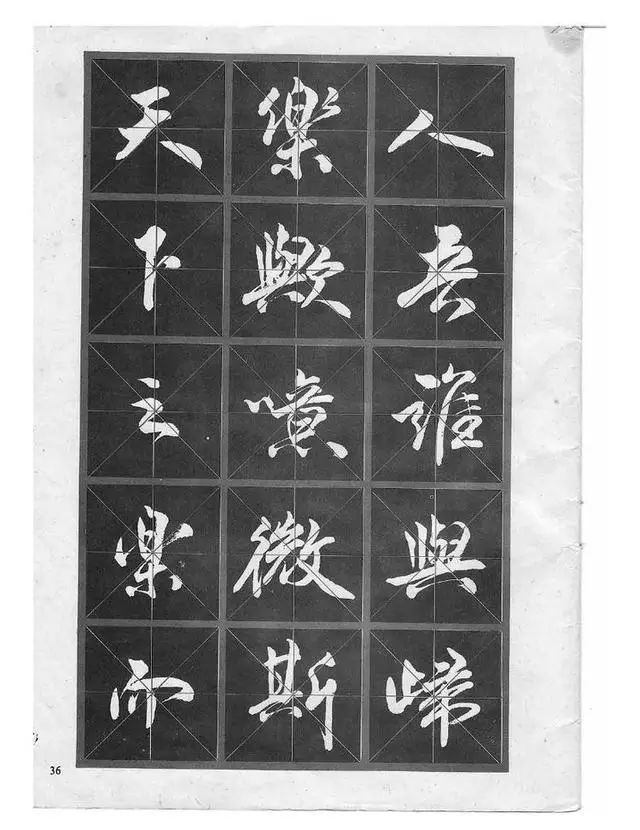 天下之樂而
樂歟噫微斯
人吾誰與歸
36